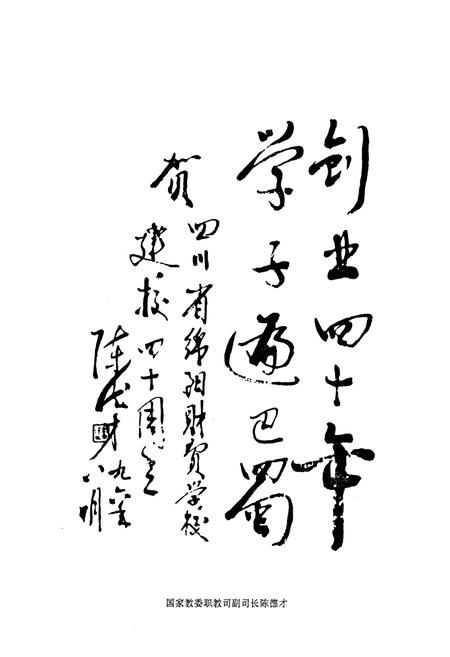 创业四十年
学子遍巴蜀
贺
四川省绵阳财贸学校
建校四十周年
陈德才
九六年
八月
国家教委职教司副司长陈德才